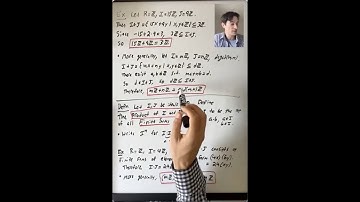 Ex. Let R=ℤ, I=15ℤ, J=9ℤ.
Then I+J = {15x+9y | x,y∈ℤ} ⊆ 3ℤ
Since -15+2·9=3, 3ℤ⊆I+J
So 15ℤ+9ℤ=3ℤ
• More generally, let I=mℤ, J=nℤ,
I+J={mx+ny | x,y∈ℤ} ⊆ dℤ.
Then exist a,b∈ℤ s.t. ma+nb=d.
So d∈I+J, so dℤ⊆I+J.
Therefore, mℤ+nℤ =
Defn. Let I, J be ideals Define
The Product of I and to be the
of all Finite Sums
• Write Iⁿ for I·I
Ex R=ℤ, I=4ℤ, J consists of
finite sums of elements form (4x)(6y).
Therefore I·J=24ℤ
• More generally,